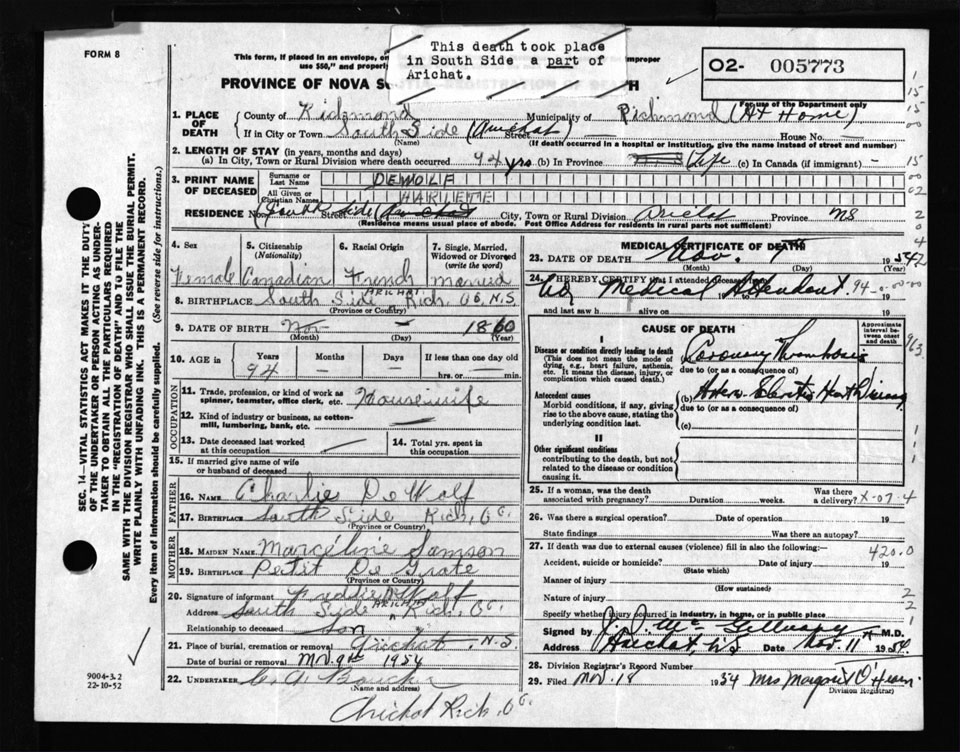 FORM 8
This form, if placed in an envelope, or
use $50," and properly
improper
This death took place
in South Side a part of
Arichat.
PROVINCE OF NOVA S
TH
O2- 005773
For use of the Department only
1. PLACE OF DEATH
County of Richmond
Municipality of Richmond (At Home)
If in City or Town South Side (Arichat) Street House No.
(Name)
(If death occurred in a hospital or institution, give the name instead of street and number)
2. LENGTH OF STAY (in years, months and days)
(a) In City, Town or Rural Division where death occurred 94 yrs (b) In Province Life (c) In Canada (if immigrant) -
3. PRINT NAME OF DECEASED
Surname or Last Name DEWOLF
All Given or Christian Names HARLETTE
RESIDENCE No. South Side (Arichat) Street City, Town or Rural Division Arichat Province NS
(Residence means usual place of abode. Post Office Address for residents in rural parts not sufficient)
4. Sex
Female
5. Citizenship (Nationality)
Canadian
6. Racial Origin
French
7. Single, Married, Widowed or Divorced (write the word)
Married
8. BIRTHPLACE South Side ARICHAT Rich. Co. N.S.
(Province or Country)
9. DATE OF BIRTH Nov - 1860
(Month) (Day) (Year)
10. AGE in Years Months Days If less than one day old
94 - - hrs. or min.
OCCUPATION
11. Trade, profession, or kind of work as spinner, teamster, office clerk, etc. Housewife
12. Kind of industry or business, as cotton-mill, lumbering, bank, etc.
13. Date deceased last worked at this occupation
14. Total yrs. spent in this occupation
15. If married give name of wife or husband of deceased
FATHER
16. NAME Charlie DeWolf
17. BIRTHPLACE South Side Rich. Co.
(Province or Country)
MOTHER
18. MAIDEN NAME Marceline Samson
19. BIRTHPLACE Petit De Grate
(Province or Country)
20. Signature of informant Freddie DeWolf
Address South Side ARICHAT Rich. Co.
Relationship to deceased Son
21. Place of burial, cremation or removal Arichat, N.S.
Date of burial or removal Nov. 9th 1954
22. UNDERTAKER C. A. Boucher
(Name and address)
Arichat Rich. Co.
MEDICAL CERTIFICATE OF DEATH
23. DATE OF DEATH Nov. 7 1954
(Month) (Day) (Year)
24. I HEREBY CERTIFY that I attended deceased from
No Medical Attendent
19 to 19
and last saw h alive on 19
94-0-00-00
CAUSE OF DEATH
Approximate interval between onset and death
I
Disease or condition directly leading to death
(This does not mean the mode of dying, e.g., heart failure, asthenia, etc. It means the disease, injury, or complication which caused death.)
(a) Coronary Thrombosis
due to (or as a consequence of)
Antecedent causes
Morbid conditions, if any, giving rise to the above cause, stating the underlying condition last.
(b) Arterio Sclerotic Heart Disease
due to (or as a consequence of)
(c)
II
Other significant conditions
contributing to the death, but not related to the disease or condition causing it.
25. If a woman, was the death associated with pregnancy? Duration weeks. Was there a delivery? X-07-4
26. Was there a surgical operation? Date of operation 19
State findings Was there an autopsy?
27. If death was due to external causes (violence) fill in also the following:- 420.0
Accident, suicide or homicide? Date of injury 19
(State which)
Manner of injury
(How sustained)
Nature of injury
Specify whether injury occurred in industry, in home, or in public place
Signed by M.D.
Address Arichat, N.S. Date Nov. 11 1954
28. Division Registrar's Record Number
29. Filed Nov. 18 1954 Mrs Margaret O'Hearn
Division Registrar)
SEC. 14—VITAL STATISTICS ACT MAKES IT THE DUTY
OF THE UNDERTAKER OR PERSON ACTING AS UNDER-
TAKER TO OBTAIN ALL THE PARTICULARS REQUIRED
IN THE "REGISTRATION OF DEATH" AND TO FILE THE
SAME WITH THE DIVISION REGISTRAR WHO SHALL ISSUE THE BURIAL PERMIT.
WRITE PLAINLY WITH UNFADING INK. THIS IS A PERMANENT RECORD.
Every item of information should be carefully supplied. (See reverse side for instructions.)
9004-3.2
22-10-52